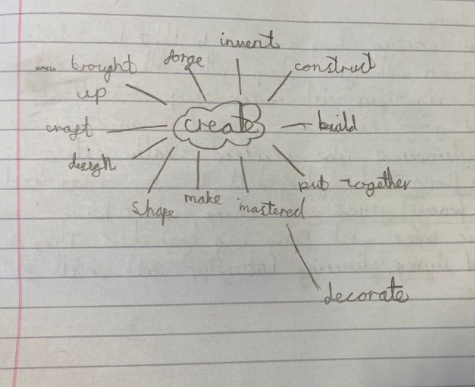 invent
forge
construct
brought
up
create
craft
build
design
put together
shape
make
mastered
decorate